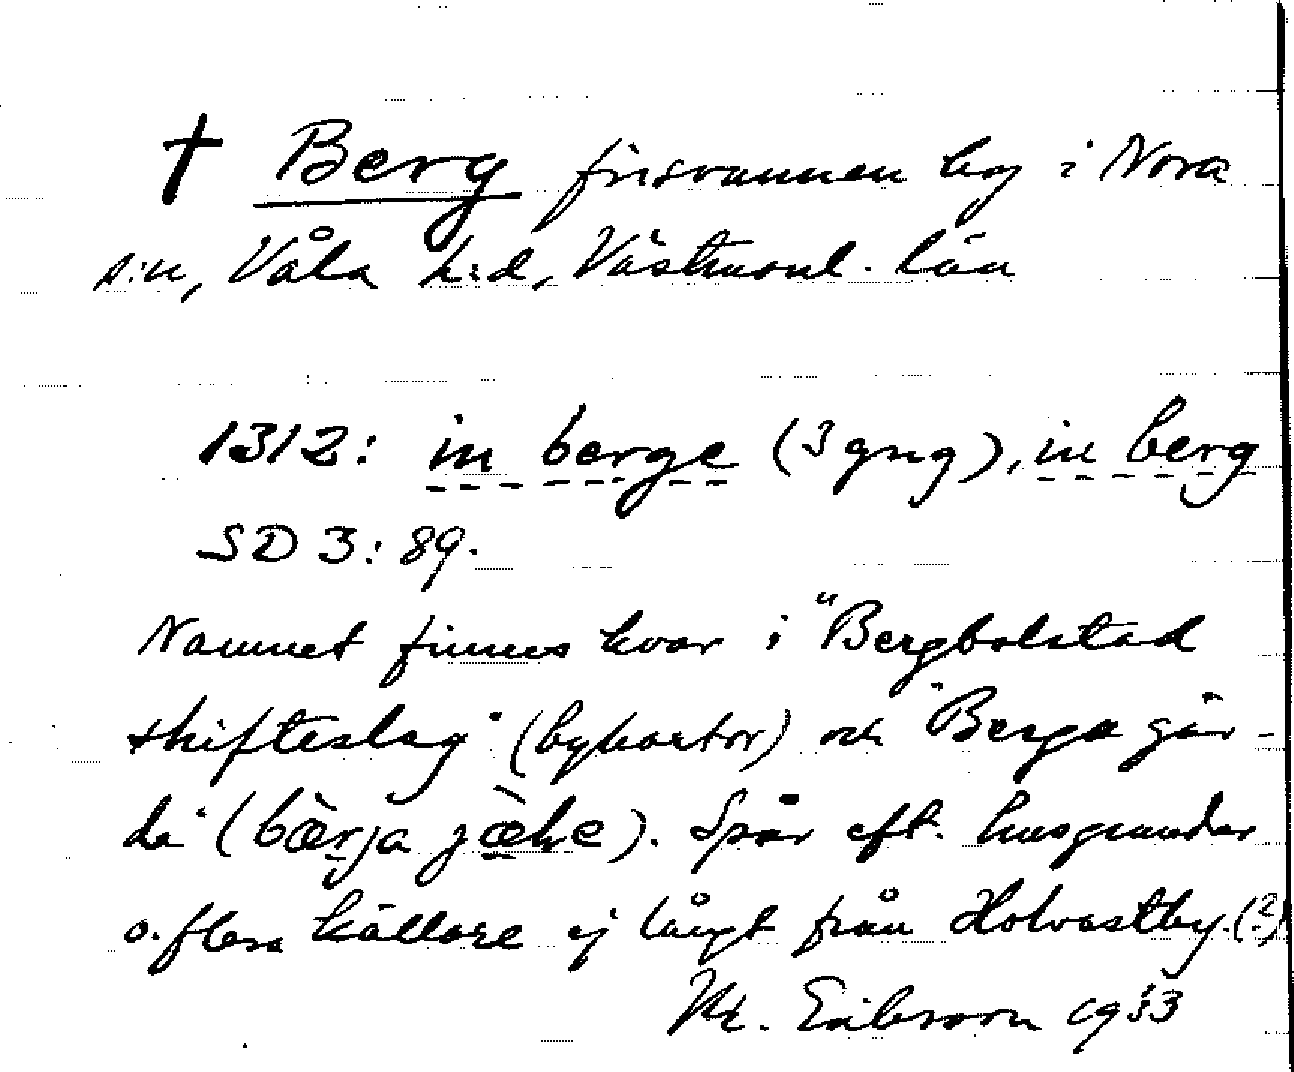 † Berg försvunnen by i Nora
s:n, Våla h:d, Västmanl. län
1312: in berge (3 gng), in berg
SD 3: 89.
Namnet finnes kvar i "Bergbolstad
skifteslag" (bykartor) och "Berga går-
da" (bærja jæḷe). Spår eft. husgrunder
o. flera källare ej långt från Holvastby. (?)
Erikson 1933